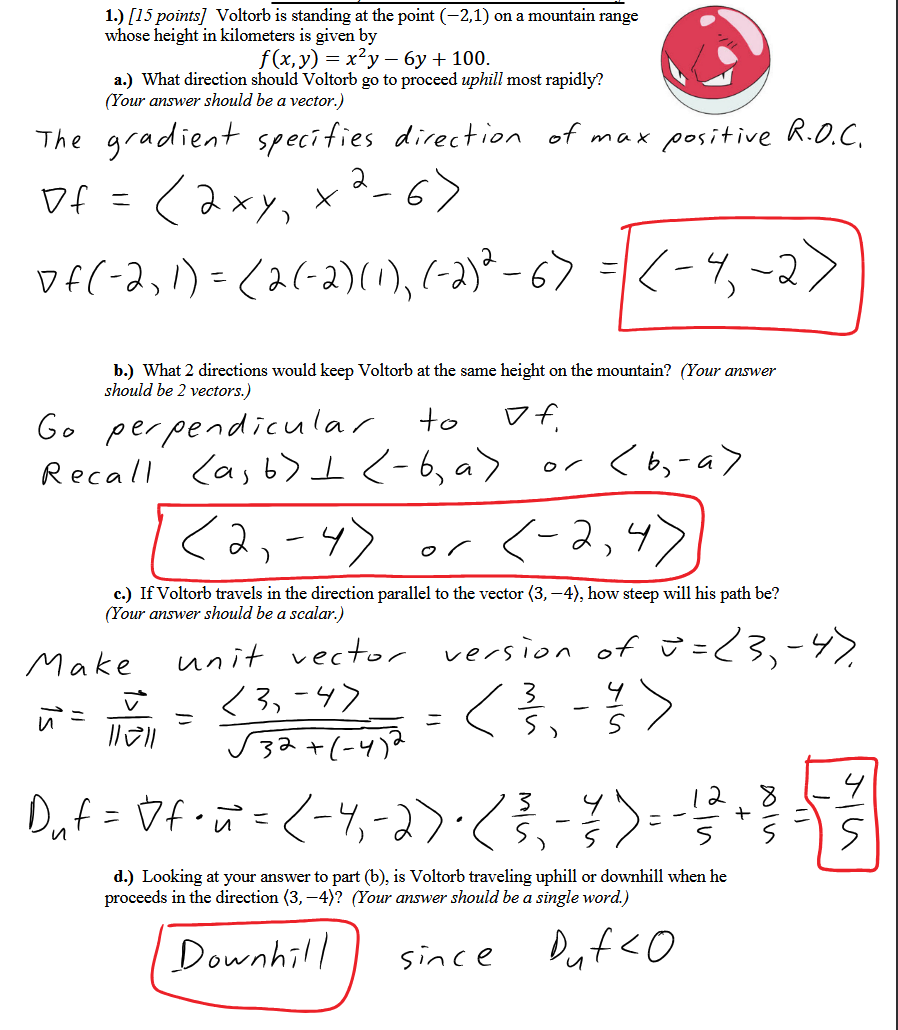 1.) [15 points] Voltorb is standing at the point (−2,1) on a mountain range
whose height in kilometers is given by
f(x, y) = x²y − 6y + 100.
a.) What direction should Voltorb go to proceed uphill most rapidly?
(Your answer should be a vector.)
The gradient specifies direction of max positive R.O.C.
∇f = ⟨2xy, x²−6⟩
∇f(−2,1) = ⟨2(−2)(1), (−2)²−6⟩ = ⟨−4, −2⟩
b.) What 2 directions would keep Voltorb at the same height on the mountain? (Your answer
should be 2 vectors.)
Go perpendicular to ∇f.
Recall ⟨a,b⟩ ⊥ ⟨−b,a⟩ or ⟨b,−a⟩
⟨2,−4⟩ or ⟨−2,4⟩
c.) If Voltorb travels in the direction parallel to the vector ⟨3, −4⟩, how steep will his path be?
(Your answer should be a scalar.)
Make unit vector version of v⃗ = ⟨3,−4⟩.
u⃗ = v⃗/||v⃗|| = ⟨3,−4⟩/√(3²+(−4)²) = ⟨3/5, −4/5⟩
Duf = ∇f·u⃗ = ⟨−4,−2⟩·⟨3/5, −4/5⟩ = −12/5 + 8/5 = −4/5
d.) Looking at your answer to part (b), is Voltorb traveling uphill or downhill when he
proceeds in the direction ⟨3, −4⟩? (Your answer should be a single word.)
Downhill since Duf<0